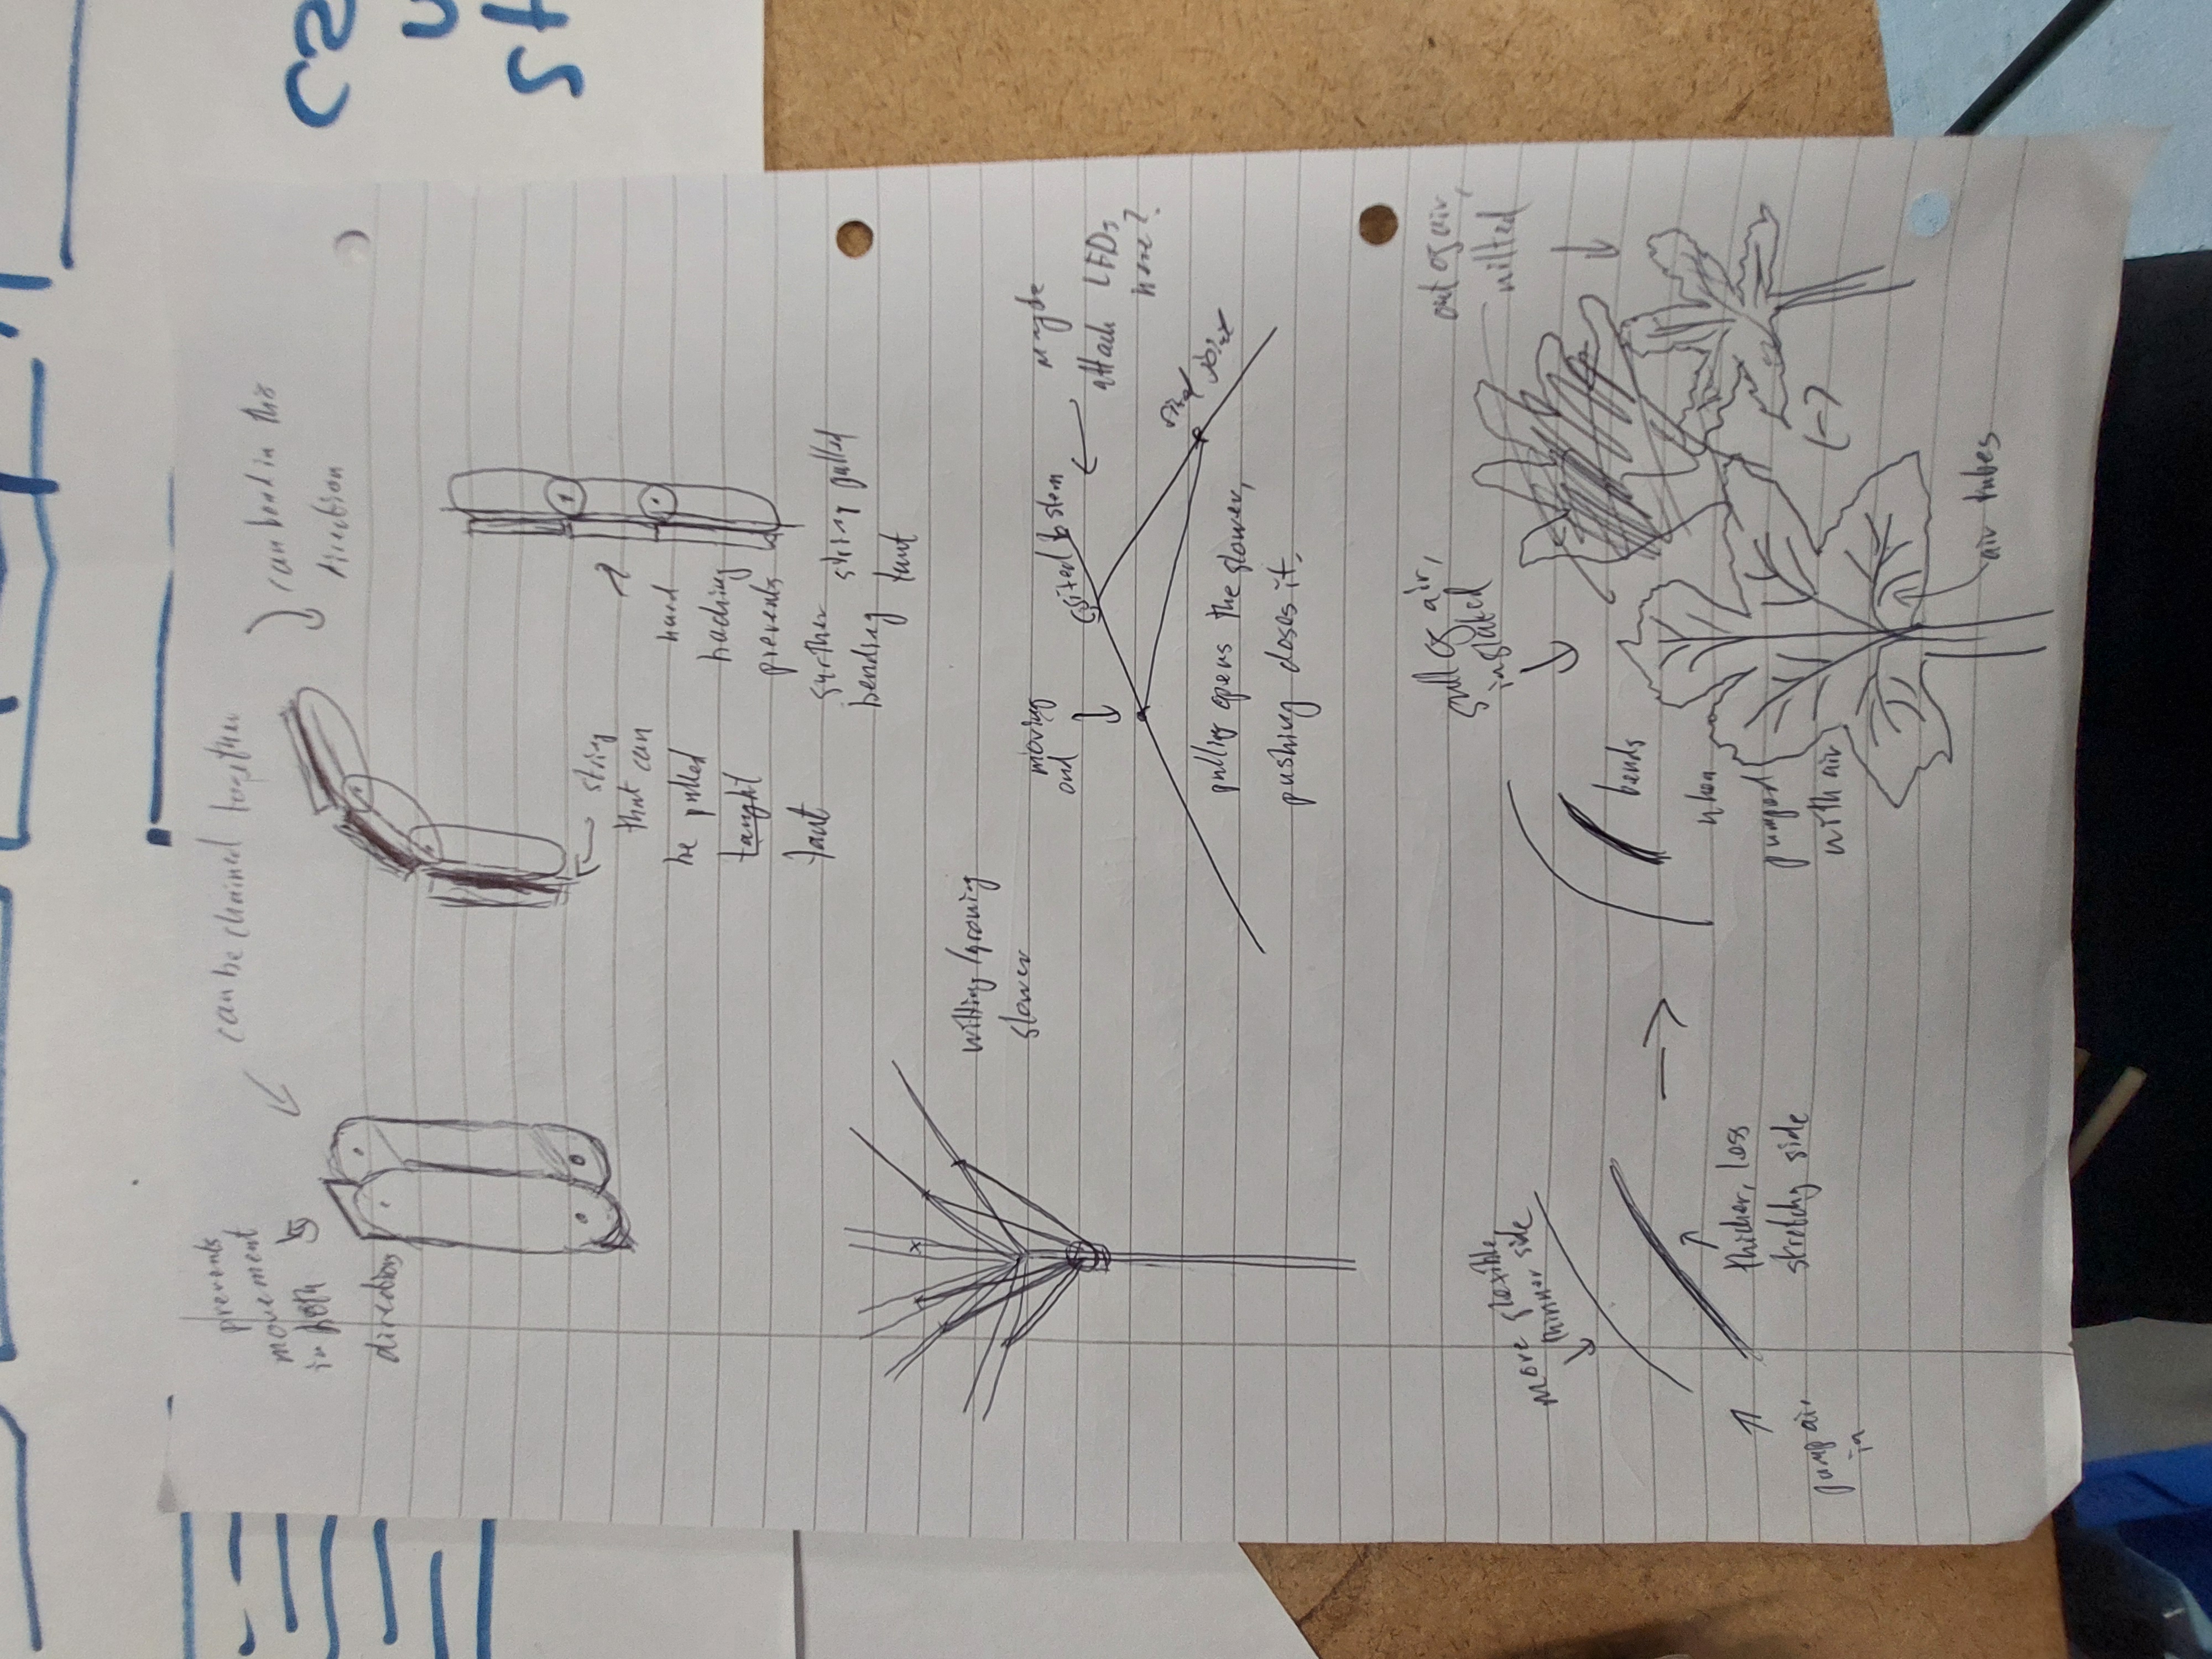 prevents
movement
in both
directions
can be chained together
can bend in this
direction
string
that can
be pulled
taught
taut
hard
backing
prevents
further
bending
string pulled
taut
wilting/growing
flower
moving
end
fixed to stem
maybe
attach LEDs
here?
fixed joint
pulling opens the flower,
pushing closes it.
more flexible,
thinner side
pump air
in
thicker, less
stretchy side
bends
when
pumped
with air
full of air,
inflated
out of air,
wilted
air tubes
st